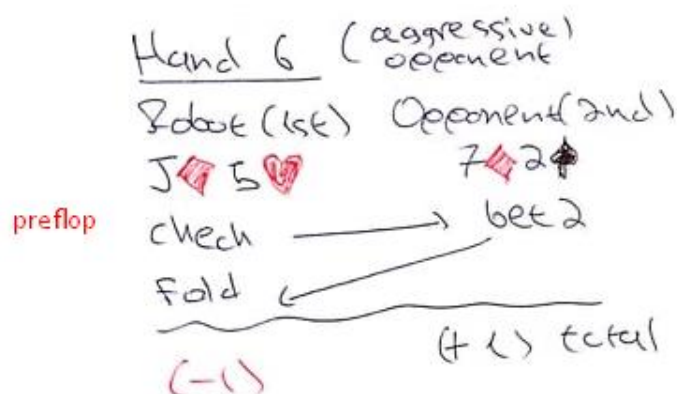 Hand 6 (aggressive) opponent
Robot (1st) Opponent (2nd)
J♦ 5♥ 7♦ 2♠
preflop check bet 2
fold
(-1) (+1) total